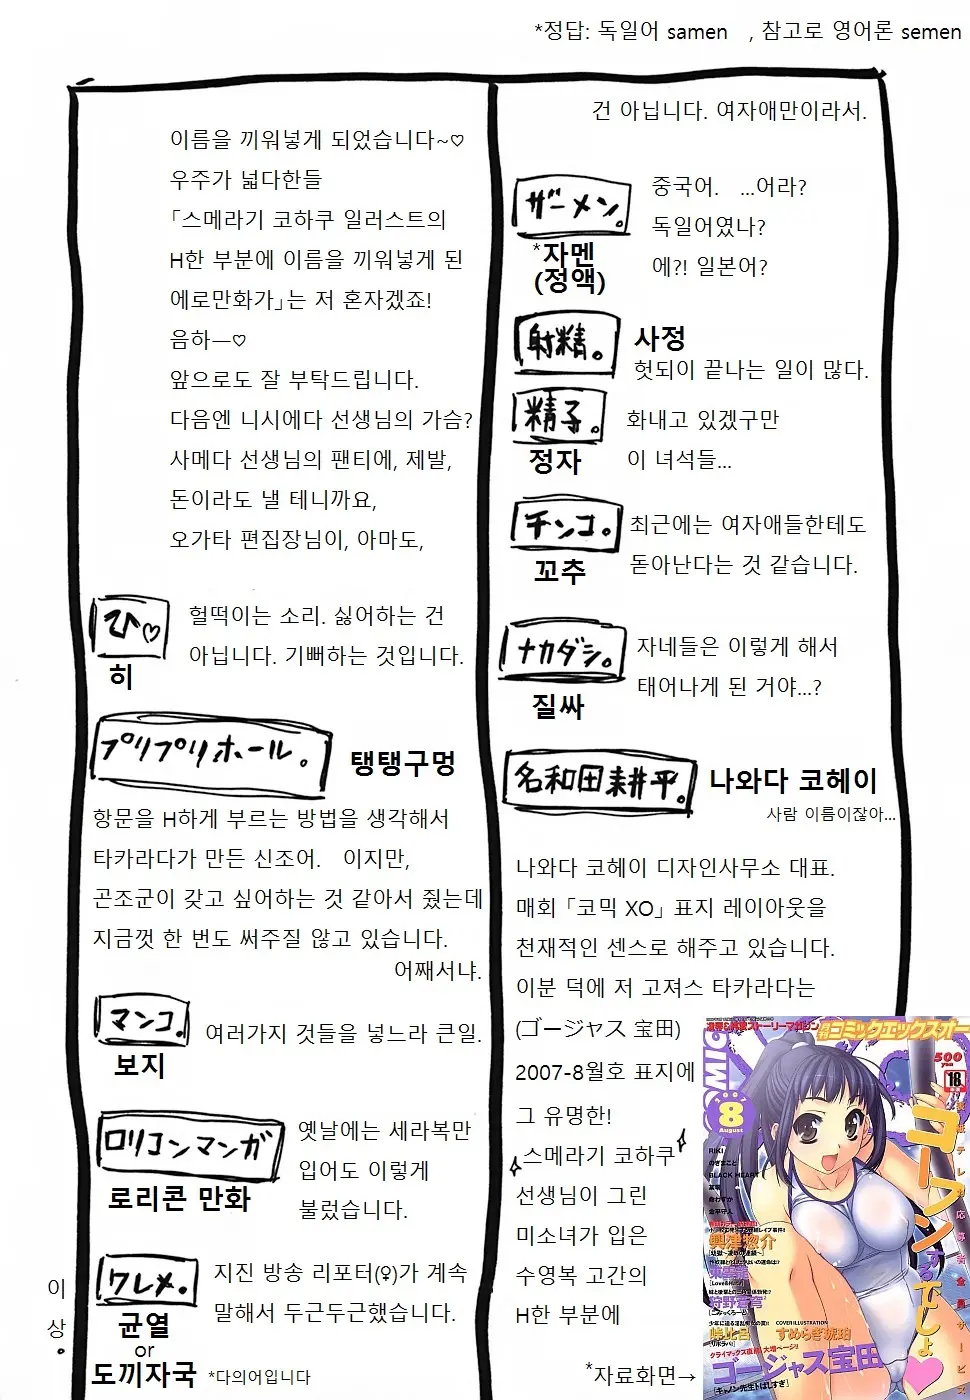 *정답: 독일어 samen , 참고로 영어론 semen
건 아닙니다. 여자애만이라서.
ザーメン。
*자멘
(정액)
중국어. ...어라?
독일어였나?
에?! 일본어?
射精。
사정
헛되이 끝나는 일이 많다.
精子。
정자
화내고 있겠구만
이 녀석들...
チンコ。
꼬추
최근에는 여자애들한테도
돋아난다는 것 같습니다.
ナカダシ。
질싸
자네들은 이렇게 해서
태어나게 된 거야...?
名和田耕平。
나와다 코헤이
사람 이름이잖아...
나와다 코헤이 디자인사무소 대표.
매회 「코믹 XO」 표지 레이아웃을
천재적인 센스로 해주고 있습니다.
이분 덕에 저 고져스 타카라다는
(ゴージャス 宝田)
2007-8월호 표지에
그 유명한!
스메라기 코하쿠
선생님이 그린
미소녀가 입은
수영복 고간의
H한 부분에
*자료화면→
コミックエックスオー
500
yen
18
8
August
RIKI
BLACK HEART
COVER ILLUSTRATION
すめらぎ琥珀
ゴージャス宝田
이름을 끼워넣게 되었습니다~♡
우주가 넓다한들
「스메라기 코하쿠 일러스트의
H한 부분에 이름을 끼워넣게 된
에로만화가」는 저 혼자겠죠!
음하—♡
앞으로도 잘 부탁드립니다.
다음엔 니시에다 선생님의 가슴?
사메다 선생님의 팬티에, 제발,
돈이라도 낼 테니까요,
오가타 편집장님이, 아마도,
ひ♡
히
헐떡이는 소리. 싫어하는 건
아닙니다. 기뻐하는 것입니다.
プリプリホール。
탱탱구멍
항문을 H하게 부르는 방법을 생각해서
타카라다가 만든 신조어. 이지만,
곤조군이 갖고 싶어하는 것 같아서 줬는데
지금껏 한 번도 써주질 않고 있습니다.
어째서냐.
マンコ。
보지
여러가지 것들을 넣느라 큰일.
ロリコンマンガ
로리콘 만화
옛날에는 세라복만
입어도 이렇게
불렀습니다.
ワレメ。
균열
or
도끼자국 *다의어입니다
지진 방송 리포터(♀)가 계속
말해서 두근두근했습니다.
이상。